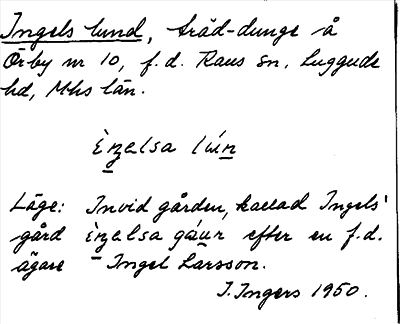 Ingels lund, träd-dunge å
Örby nr 10, f.d. Raus sn, Luggude
hd, Mhs län.
Läge: Invid gården, kallad Ingels'
gård efter en f.d.
ägare Ingel Larsson.
I. Ingers 1950.